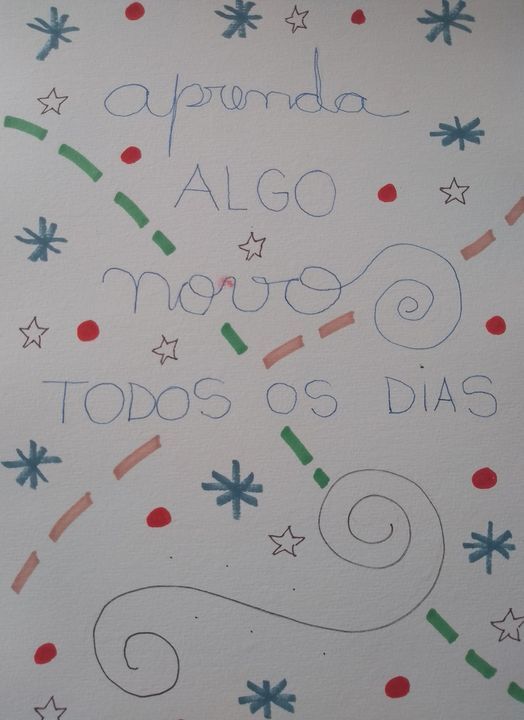 aprenda
ALGO
novo
TODOS OS DIAS